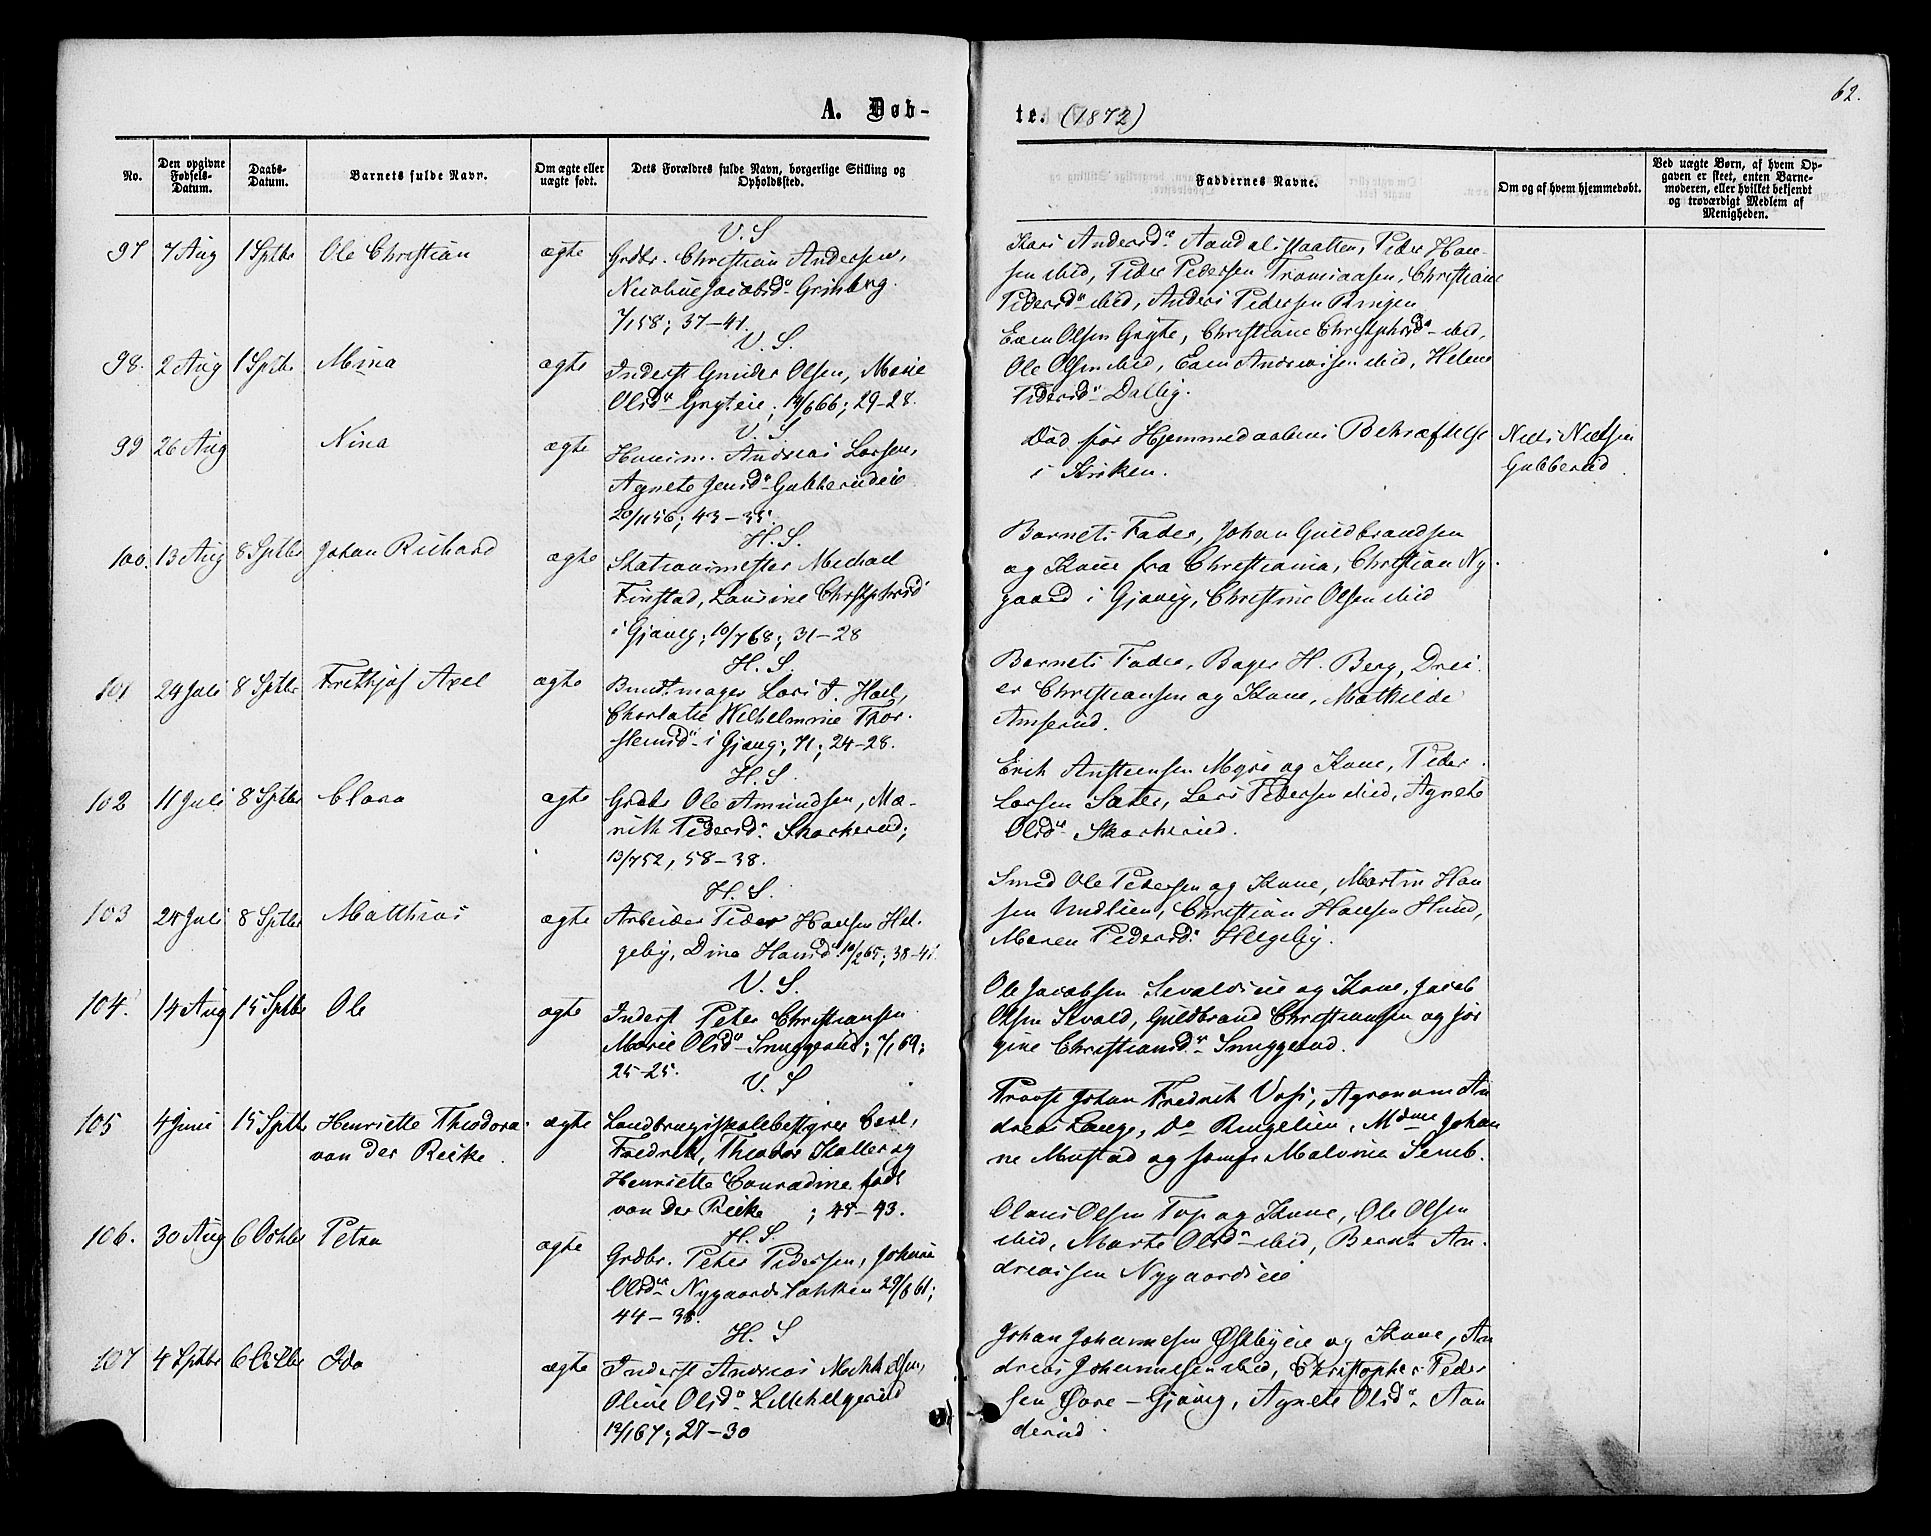 62.
A. Døb-
te. (1872)
No.
Den opgivne Fødsels-Datum.
Daabs-Datum.
Barnets fulde Navn.
Om ægte eller uægte født.
Dets Forældres fulde Navn, borgerlige Stilling og Opholdssted.
Faddernes Navne.
Om og af hvem hjemmedøbt.
Ved uægte Børn, af hvem Opgaven er skeet, enten Barnemoderen, eller hvilket bekjendt og troværdigt Medlem af Menigheden.
97 7 Aug 1 Sptbr Ole Christian ægte
V. S
Grdbr. Christian Andersen,
Jacobsd Grinberg.
7/158; 37-41.
Kari Andersd Peder Han-
sen ibid, Peder Pedersen Christiane
Pedersd ibid, Anders Pedersen Ringen
98. 2 Aug 1 Sptbr Mina ægte
V. S.
Inderst Olsen, Marie
Olsd Gryteie; 29-28.
Even Olsen Gryte, Christiane ibid,
Ole Olsen ibid, Even Andreassen ibid, Helene
Pedersd Dalby.
99 26 Aug Nina ægte
V. S
Huusm. Andreas Larsen,
Agnete Jensd Gubberudeie
20/1156; 43-35.
Død før Hjemmedaabens Bekræftelse
i Kirken.
Niels Nielsen
Gubberud
100. 13 Aug 8 Sptbr Johan Richard ægte
H. S.
Stationsmester Michael
Finstad, Laurine
i Gjøvig; 10/768; 31-28
Barnets Fader, Johan Guldbrandsen
og Kone fra Christiania, Christian Ny-
gaard i Gjøvig, Christine Olsen ibid
101 24 Juli 8 Sptbr Frethjof Axel ægte
H. S.
Buntmager Lars J. Hoel,
Charlotte Wilhelmine Thor-
i Gjøvig; 71; 24-28.
Barnets Fader, Bager H. Berg, Drei-
er Christiansen og Kone, Mathilde
Amserud.
102 11 Juli 8 Sptbr Clara ægte
H. S.
Grdbr Ole Amundsen, Ma-
rith Pedersd Skarherud;
13/752, 58-38.
Erik Austensen Myre og Kone, Peder
Larsen Sæter, Lars Pedersen ibid, Agnete
Olsd Skarherud.
103 24 Juli 8 Sptbr Matthias ægte
H. S.
Arbeider Peder Hansen Hel-
geby, Dina Hansd 10/265; 38-41.
Smed Ole Pedersen og Kone, Martin Han
sen Christian Hansen Hund,
Maren Pedersd Helgeby.
104. 14 Aug 15 Sptbr Ole ægte
V. S.
Inderst Peter Christiansen
Marie Olsd Snuggerud; 7/169;
25-25.
Ole Jacobsen og Kone, Jacob
Olsen Sevald, Guldbrand Christiansen og Jør
gine Christiansd Snuggerud.
105 4 Juni 15 Sptbr Henriette Theodora
von der Recke ægte
V. S
Landbrugsskolebestyrer Carl,
Fredrik, Theodor og
Henriette Conradine født
von der Recke ; 43.
Provst Johan Fredrik Voss, Agronom An
dreas Lange, Do Ringelien, Mdme Johan
ne Mustad og Malvine
106. 30 Aug 6 Octbr Petra ægte
H. S.
Grdbr. Peter Pedersen, Johane
Olsd 29/661;
44-38.
Olaus Olsen Top og Kone, Ole Olsen
ibid, Marte Olsd ibid, Bernt An-
dreassen Nygaardseie
107 4 Sptbr 6 Octbr Ida ægte
H. S
Inderst Andreas Mikkelsen,
Oline Olsd Lillehelgerud
12/167; 27-30
Johan Johannesen Østbyeie og Kone, An
dreas Johannesen ibid, Christopher Peder
sen Øvre-Gjøvig, Agnete Olsd Aan
derud.